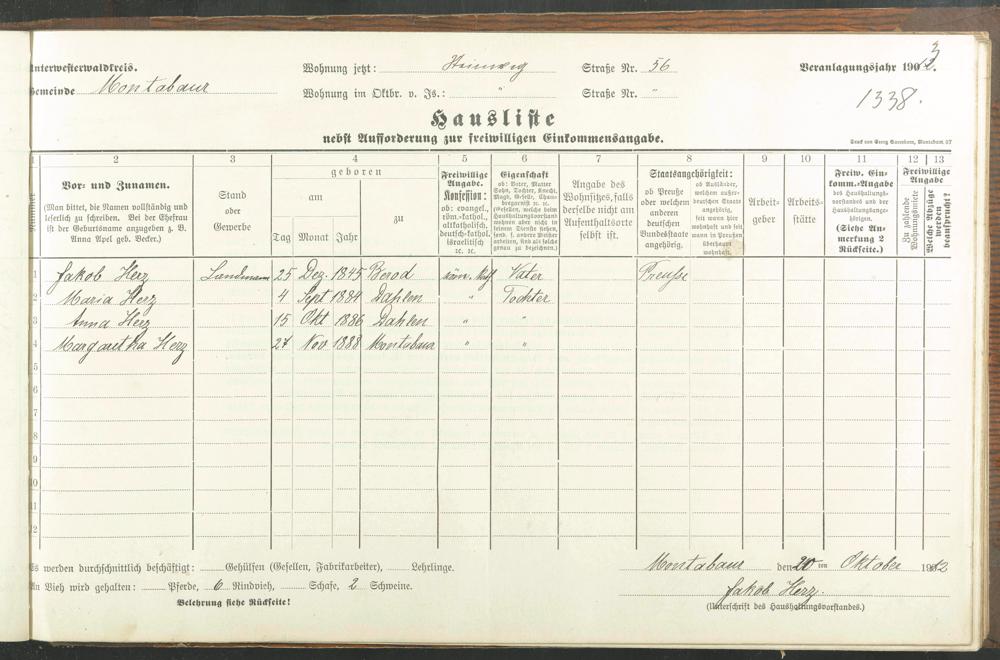 Unterwesterwaldkreis.
Gemeinde Montabaur
Wohnung jetzt: Steinweg Straße Nr. 56
Wohnung im Oktbr. v. Js.: " Straße Nr. "
Veranlagungsjahr 1903.
1338.
Hausliste
nebst Aufforderung zur freiwilligen Einkommensangabe.
Druck von Georg Sauerborn, Montabaur 07
1 2 3 4 5 6 7 8 9 10 11 12 13
Nummer
Vor- und Zunamen.
(Man bittet, die Namen vollständig und
leserlich zu schreiben. Bei der Ehefrau
ist der Geburtsname anzugeben z. B.
Anna Apel geb. Becker.)
Stand
oder
Gewerbe
geboren
am
zu
Tag Monat Jahr
Freiwillige
Angabe.
Konfession:
ob: evangel.,
röm.-kathol.,
altkatholisch,
deutsch-kathol.
israelitisch
ec. ec.
Eigenschaft
ob: Vater, Mutter
Sohn, Tochter, Knecht,
Magd, Geselle, Cham-
bregarnist ec. ec.
(Gesellen, welche beim
Haushaltungsvorstand
wohnen aber nicht in
seinem Dienste stehen,
sond. f. andere Meister
arbeiten, sind als solche
genau zu bezeichnen.)
Angabe des
Wohnsitzes, falls
derselbe nicht am
Aufenthaltsorte
selbst ist.
Staatsangehörigkeit:
ob Preuße
oder welchem
anderen
deutschen
Bundesstaat
angehörig.
ob Ausländer,
welchem außer-
deutschen Staate
angehörig,
seit wann hier
wohnhaft und seit
wann in Preußen
überhaupt
wohnhaft.
Arbeit-
geber
Arbeits-
stätte
Freiw. Ein-
komm.-Angabe
des Haushaltungs-
vorstandes und der
Haushaltungsange-
hörigen.
(Siehe An-
merkung 2
Rückseite.)
Freiwillige
Angabe
Zu zahlende
Wohnungsmiete
Welche Abzüge
werden
beansprucht?
1 Jakob Herz Landmann 25 Dez. 1845 Berod röm. kath Vater Preuße
2 Maria Herz 4 Sept 1884 Dahlen " Tochter
3 Anna Herz 15 Okt 1886 Dahlen " "
4 Margaretha Herz 27 Nov 1888 Montabaur " "
5
6
7
8
9
10
11
12
Es werden durchschnittlich beschäftigt: Gehülfen (Gesellen, Fabrikarbeiter), Lehrlinge.
An Vieh wird gehalten: Pferde, 6 Rindvieh, Schafe, 2 Schweine.
Belehrung siehe Rückseite!
Montabaur den 20 ten Oktober 1902
Jakob Herz.
(Unterschrift des Haushaltungsvorstandes.)